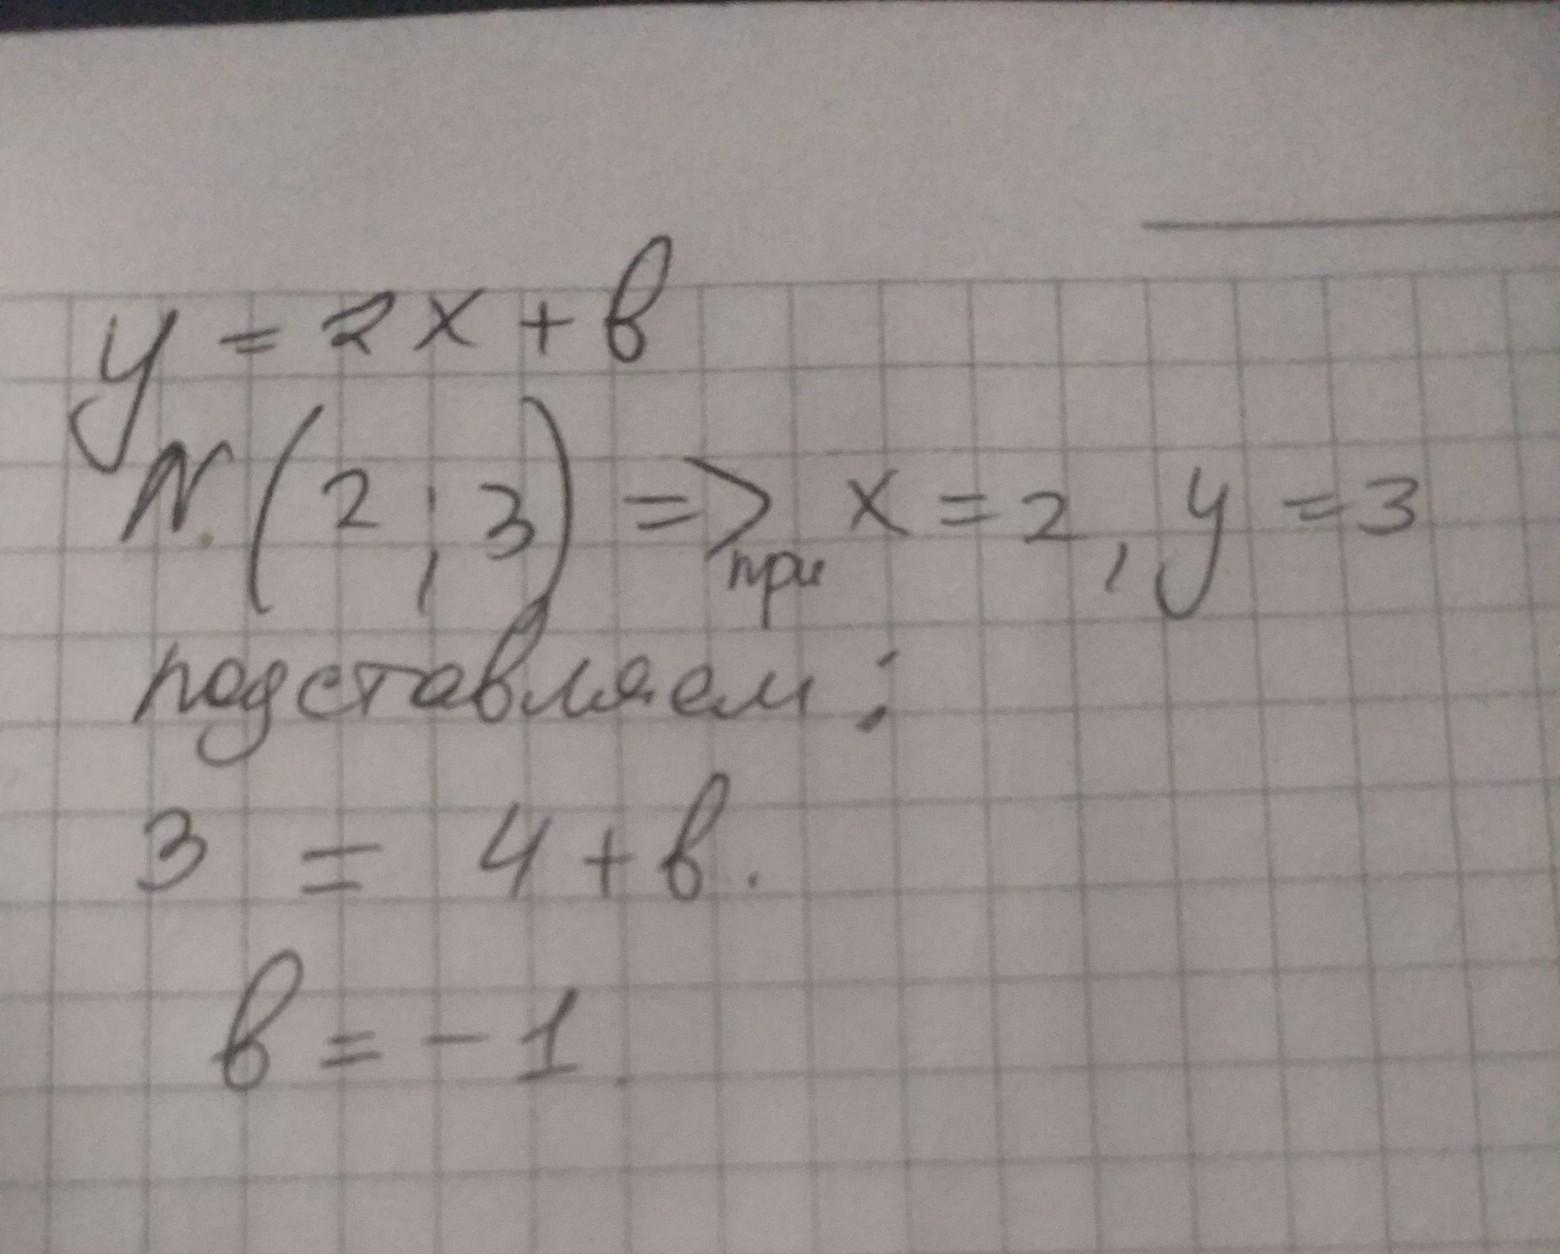 y = 2x + в
N. (2 ; 3) => при x = 2, y = 3
подставляем:
3 = 4 + в.
в = - 1